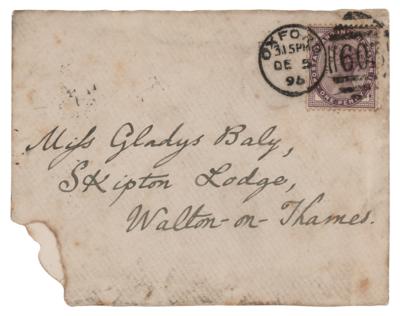 OXFORD
3.15PM
DE 5
96
603
ONE PENNY
Miss Gladys Baly,
Skipton Lodge,
Walton-on-Thames.